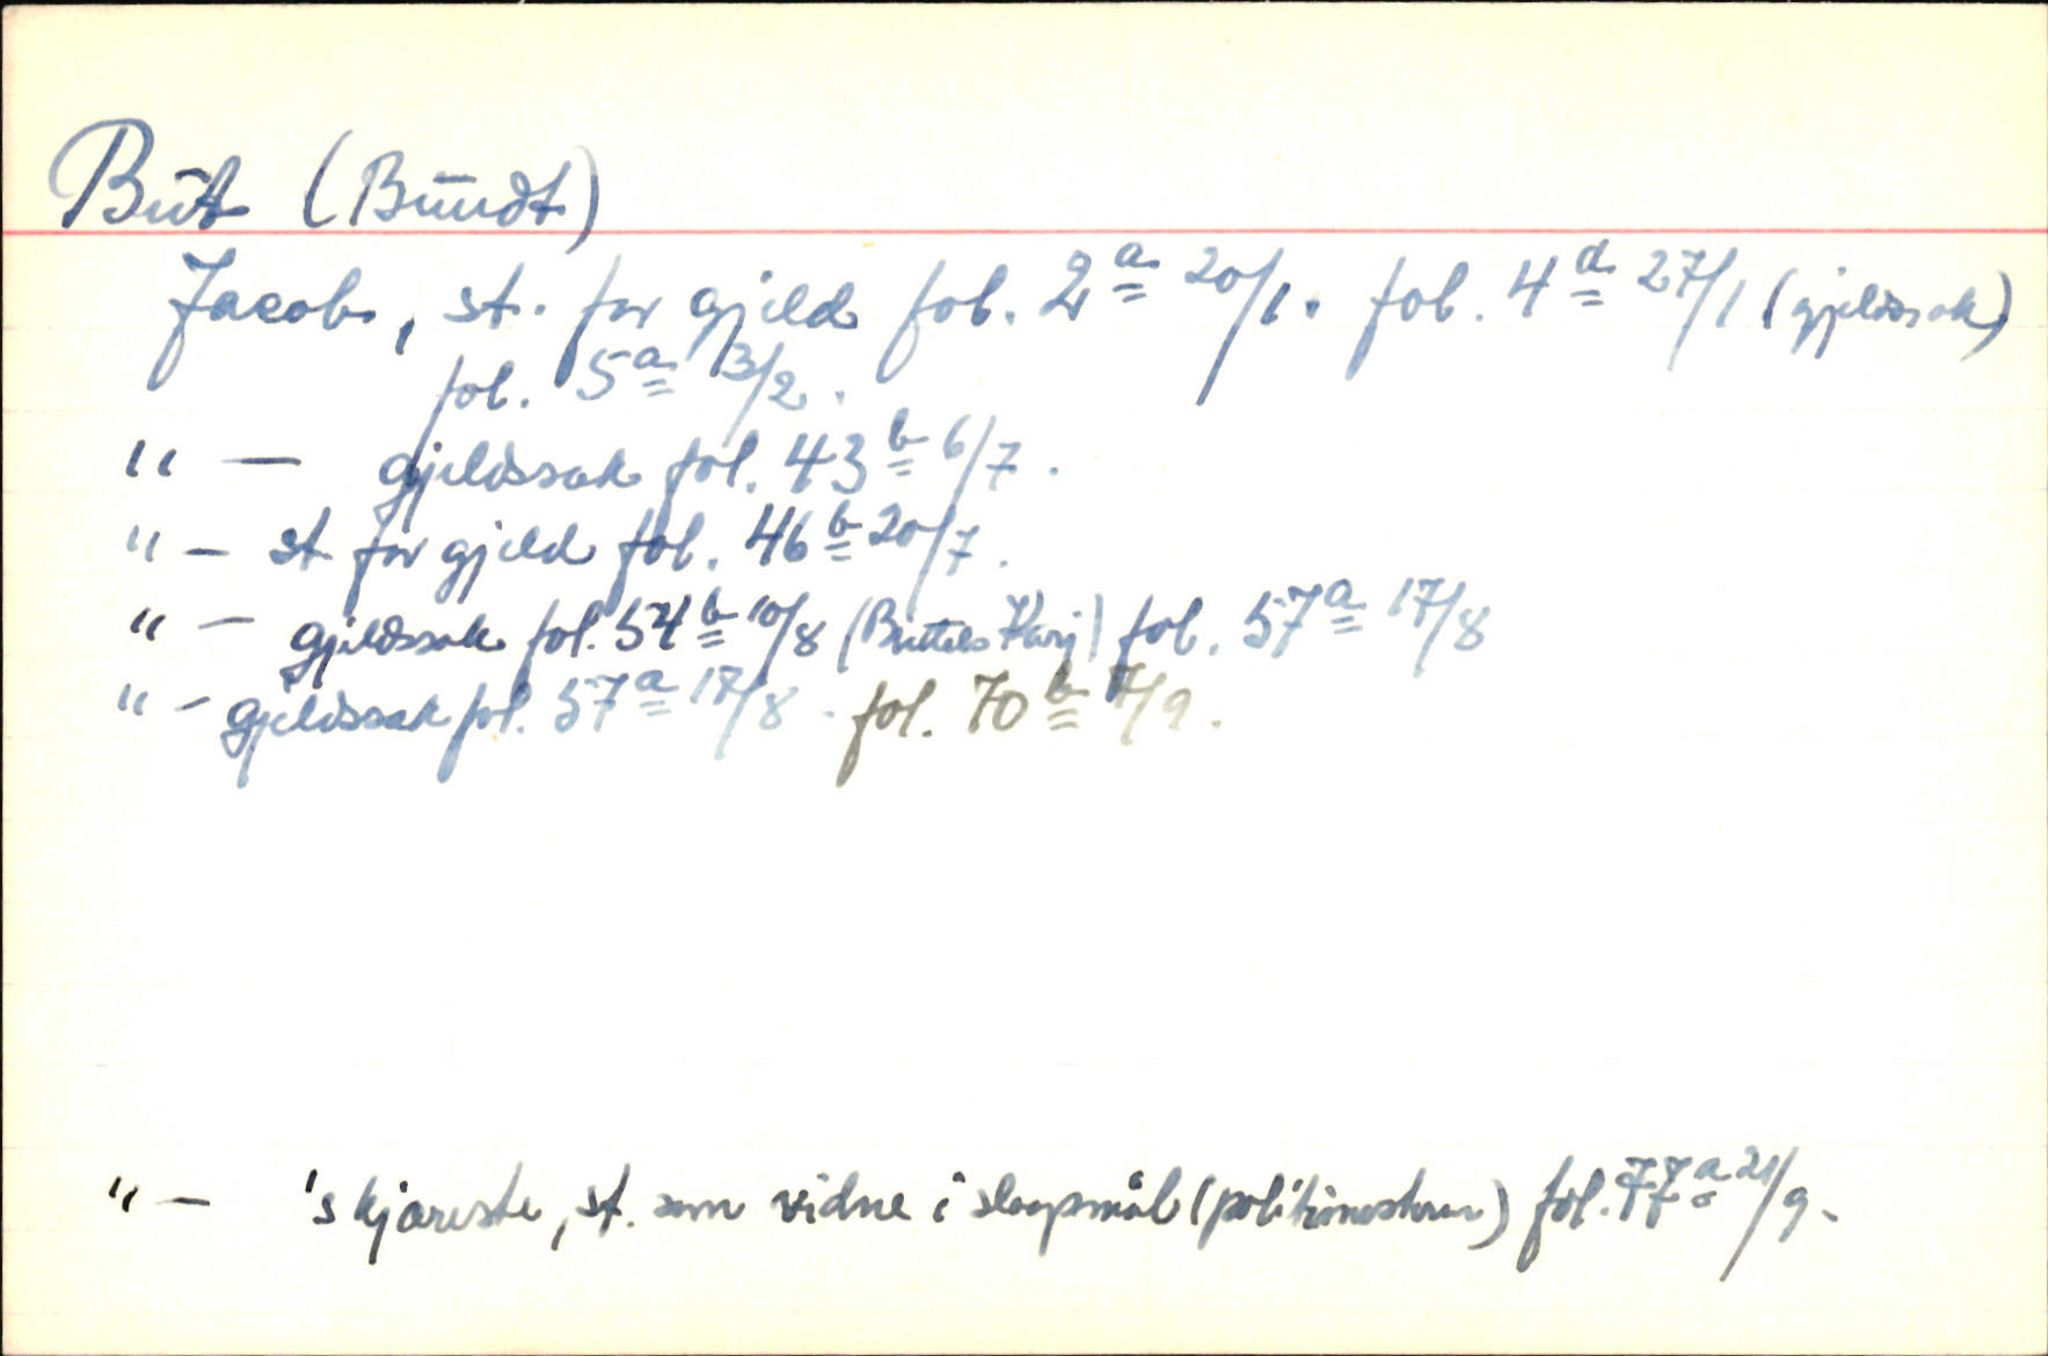 Būt (Būndt)
Jacob, st. for gjeld fol. 2a 20/1. fol. 4a 27/1 (gjeldssak)
fol. 5a 3/2.
" — gjeldssak fol. 43b 6/7.
" — st for gjeld fol. 46b 20/7.
" — gjeldssak fol. 54b 10/8 ( ) fol. 57a 17/8
" — gjeldssak fol. 57a 17/8 . fol. 70b 7/9.
" — 's kjæreste, st. som vidne i slagsmål (politimesteren) fol. 77a 21/9.